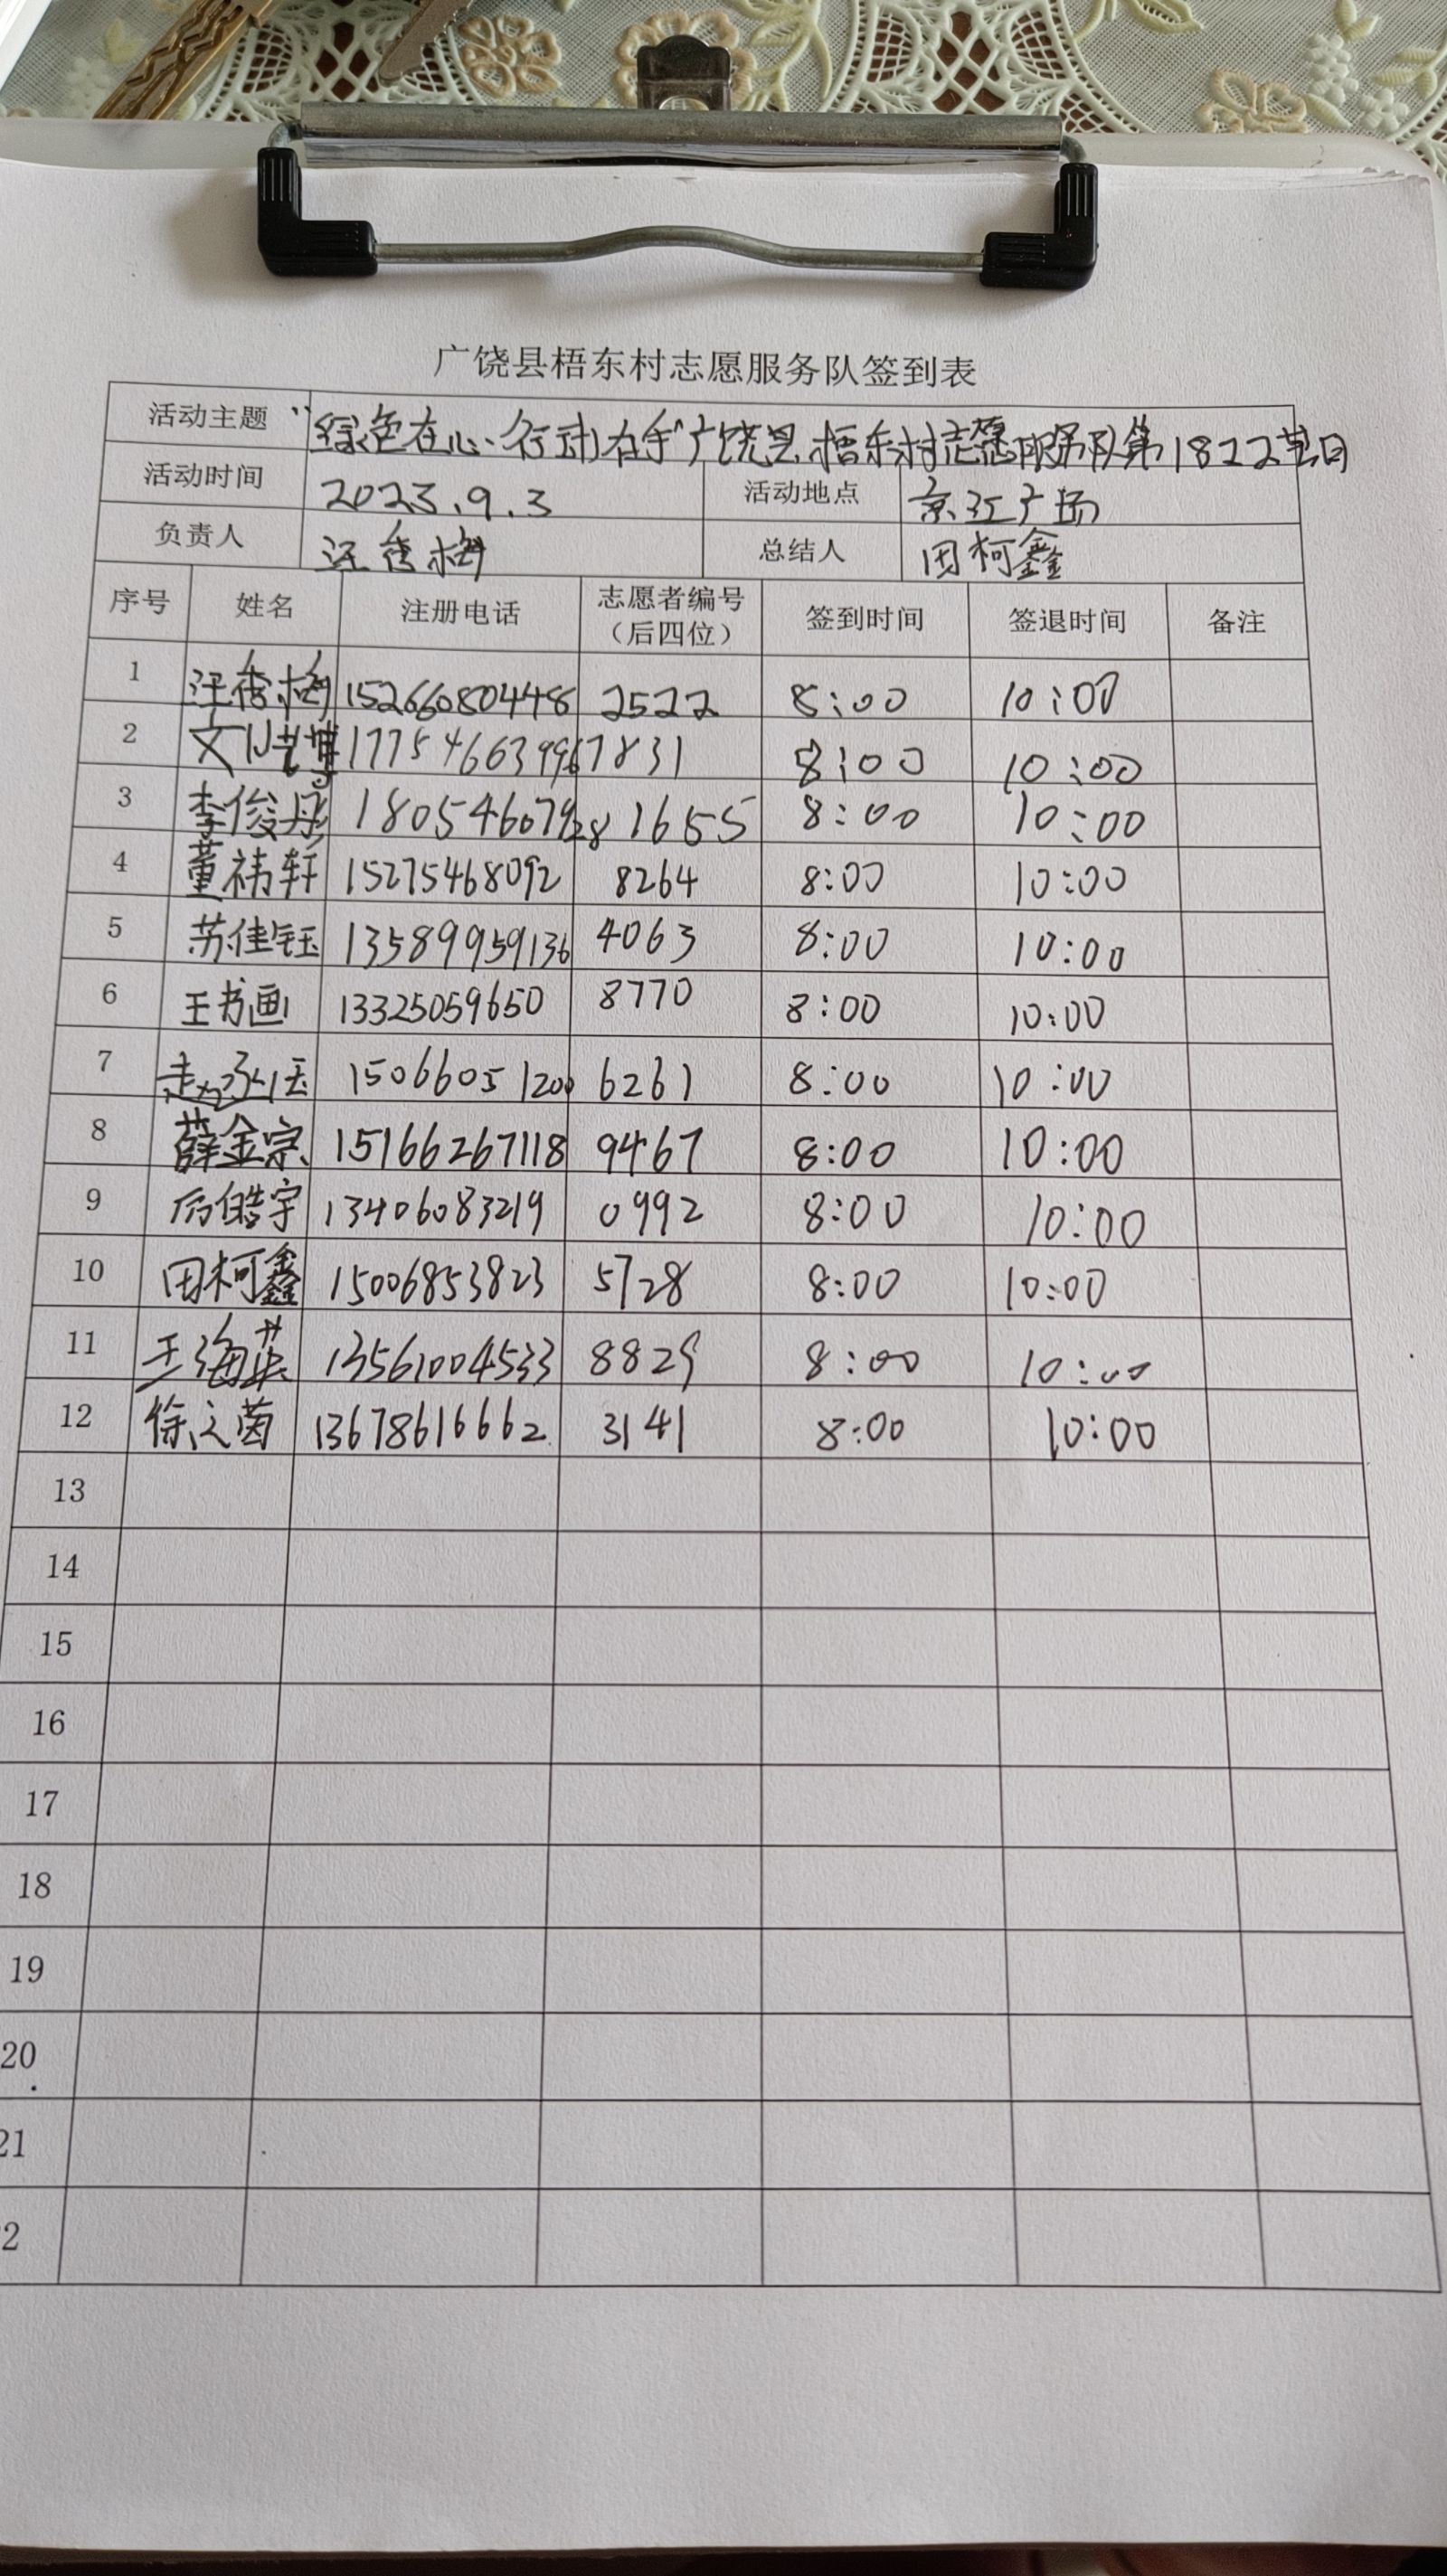 广饶县梧东村志愿服务队签到表
活动主题 “绿色在心·行动在手”广饶县梧东村志愿服务队第1822善日
活动时间 2023.9.3 活动地点 京江广场
负责人 汪秀梅 总结人 田柯鑫
序号 姓名 注册电话 志愿者编号（后四位） 签到时间 签退时间 备注
1 汪秀梅 15266080448 2522 8:00 10:00
2 17754663996 7831 8:00 10:00
3 李俊丹 18054607928 1655 8:00 10:00
4 董祎轩 15275468092 8264 8:00 10:00
5 苏佳钰 13589959136 4063 8:00 10:00
6 王书画 13325059650 8770 8:00 10:00
7 15066051200 6261 8:00 10:00
8 薛金宗 15166267118 9467 8:00 10:00
9 皓宇 13406083219 0992 8:00 10:00
10 田柯鑫 15006853823 5728 8:00 10:00
11 王海英 13561004533 8829 8:00 10:00
12 徐文茵 13678616662 3141 8:00 10:00
13
14
15
16
17
18
19
20
21
2